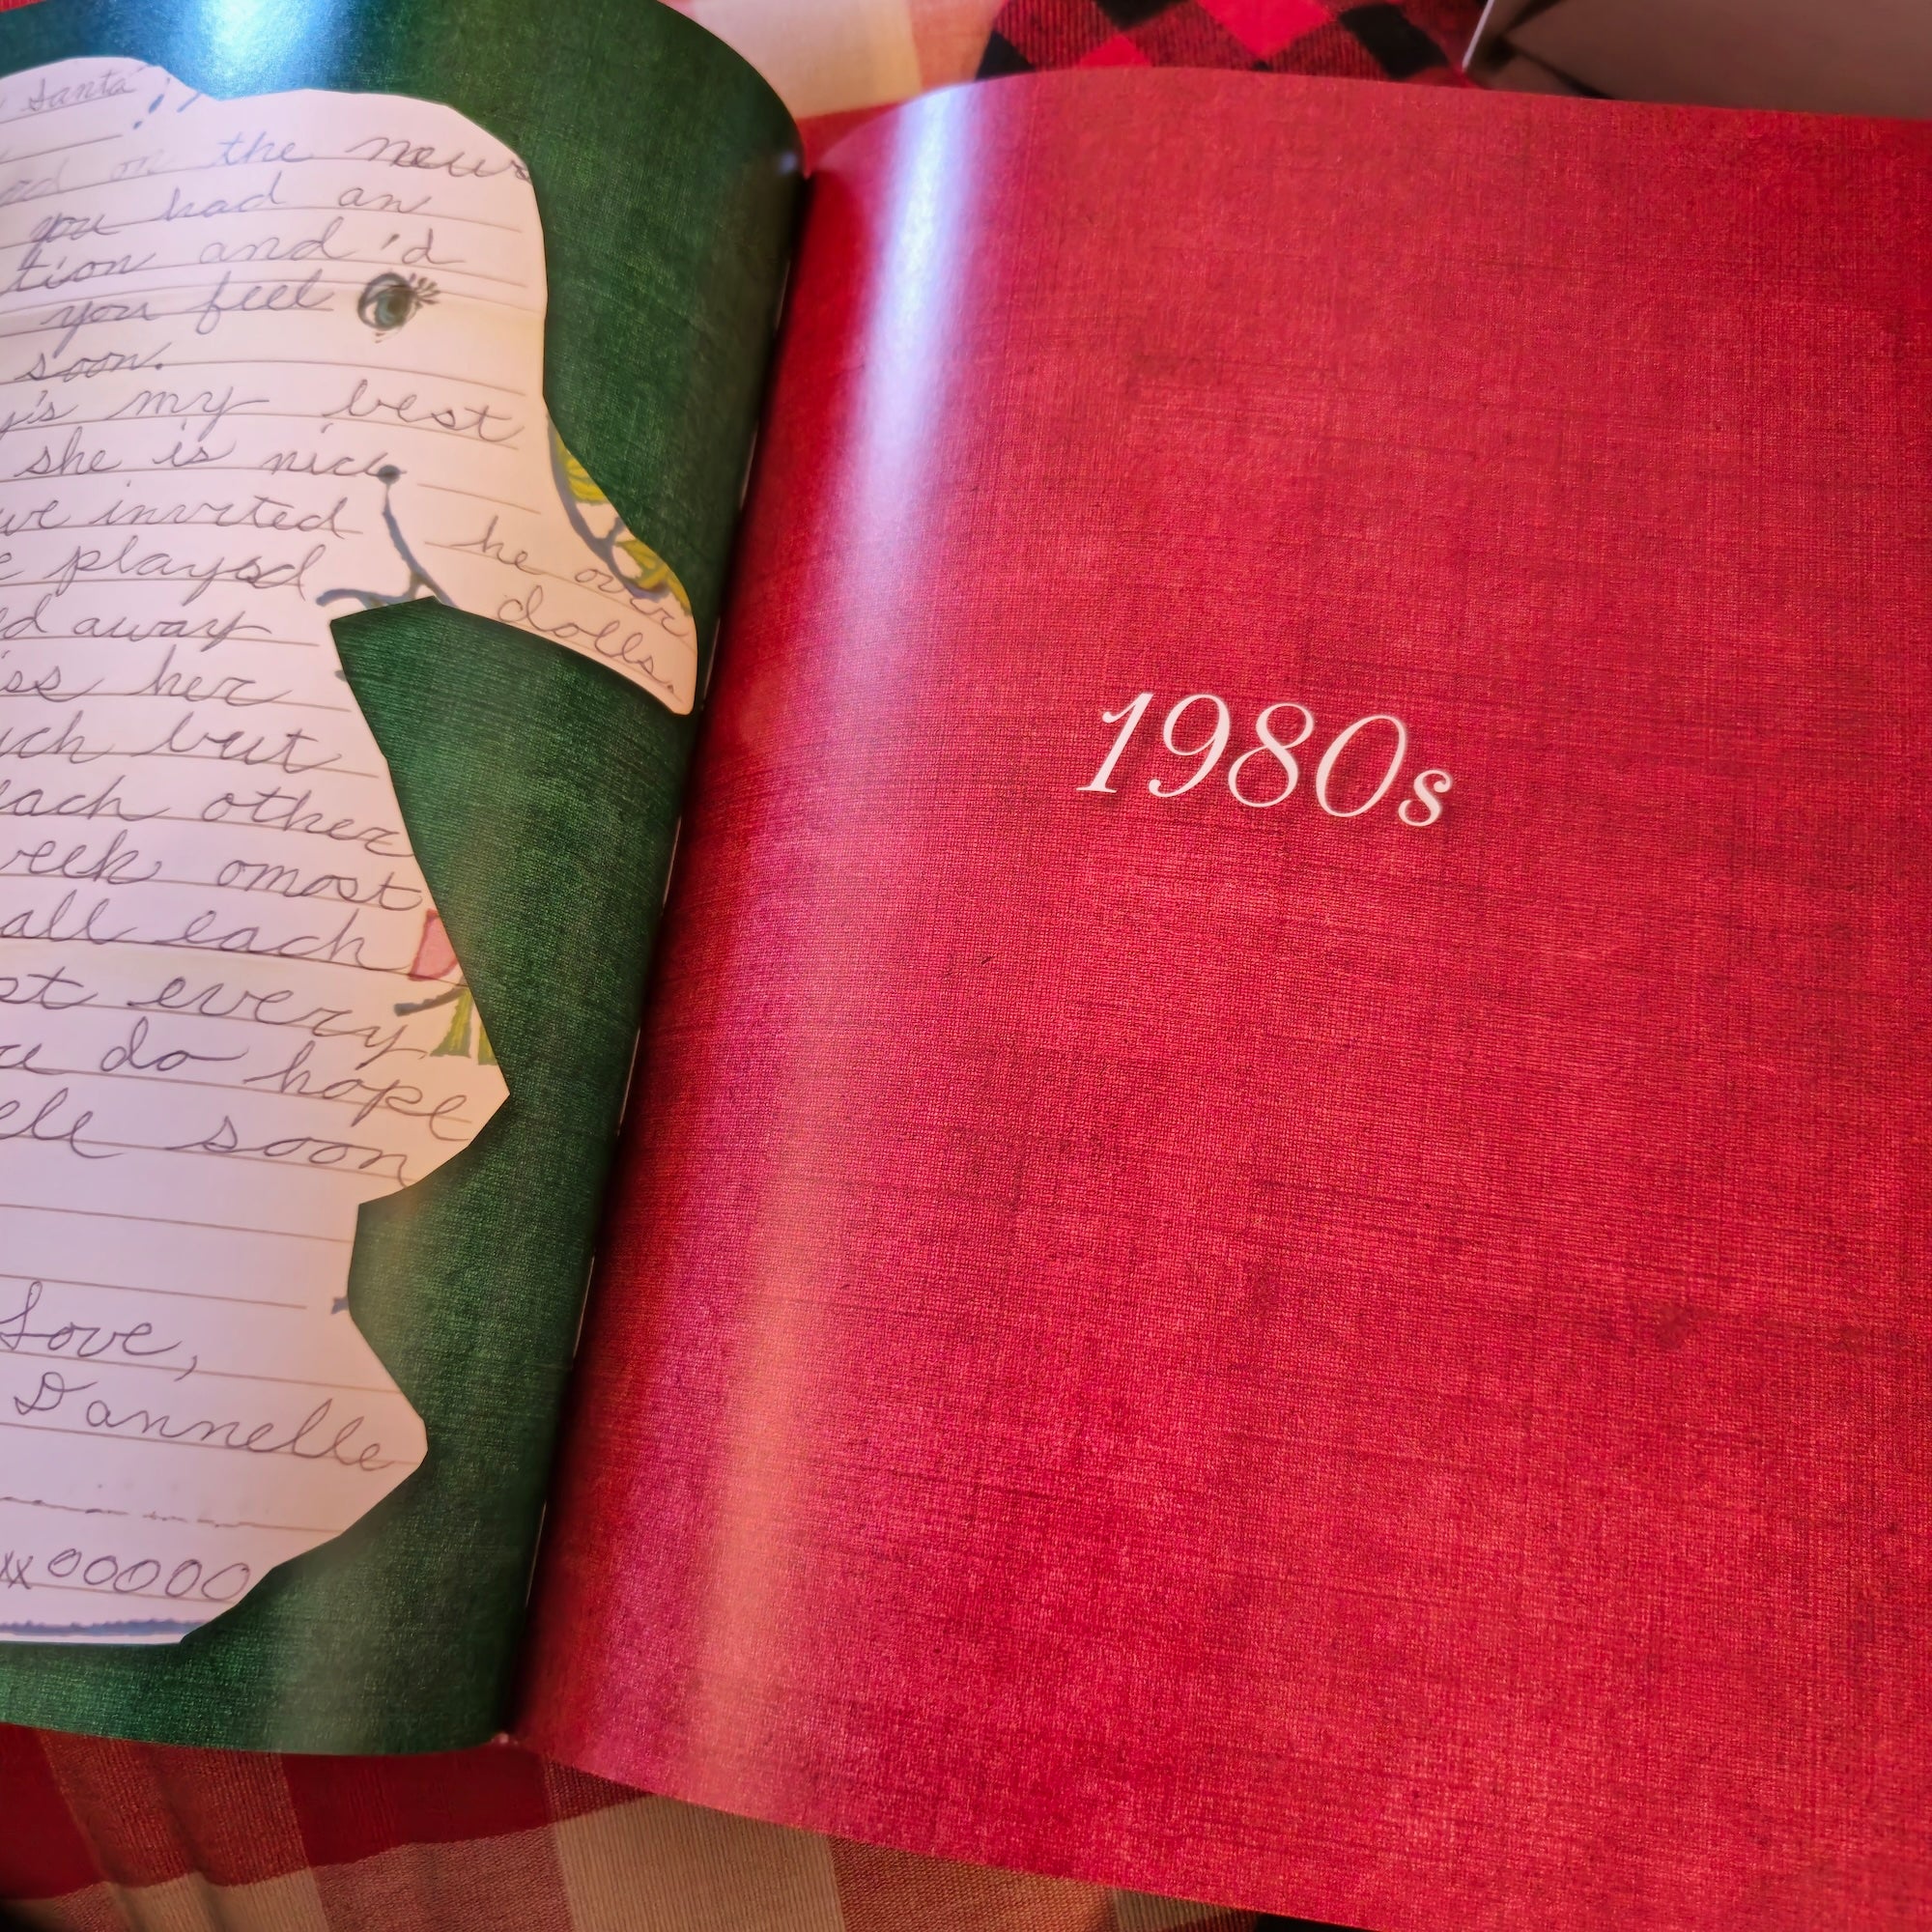 Santa
on the news
you had an
tion and 'd
you feel
soon.
y's my best
she is nice
ve invited he over
e played dolls.
d away
iss her
uch but
each other
eek omost
all each
st every
do hope
ele soon
Love,
Dannelle
xx00000
1980s